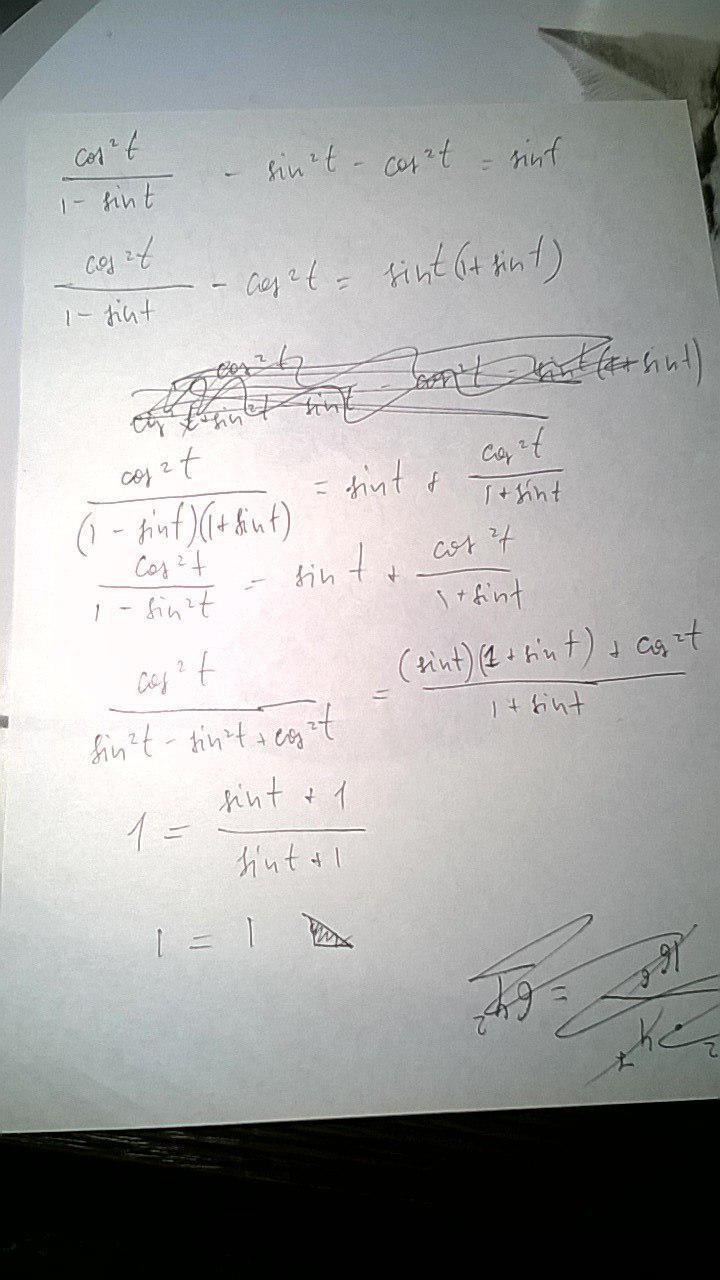 cos²t / (1 - sint) - sin²t - cos²t = sint
cos²t / (1 - sint) - cos²t = sint(1+sint)
cos²t / ((1 - sint)(1+sint)) = sint + cos²t / (1+sint)
cos²t / (1 - sin²t) = sint + cos²t / (1+sint)
cos²t / (sin²t - sin²t + cos²t) = ((sint)(1+sint) + cos²t) / (1+sint)
1 = (sint + 1) / (sint + 1)
1 = 1